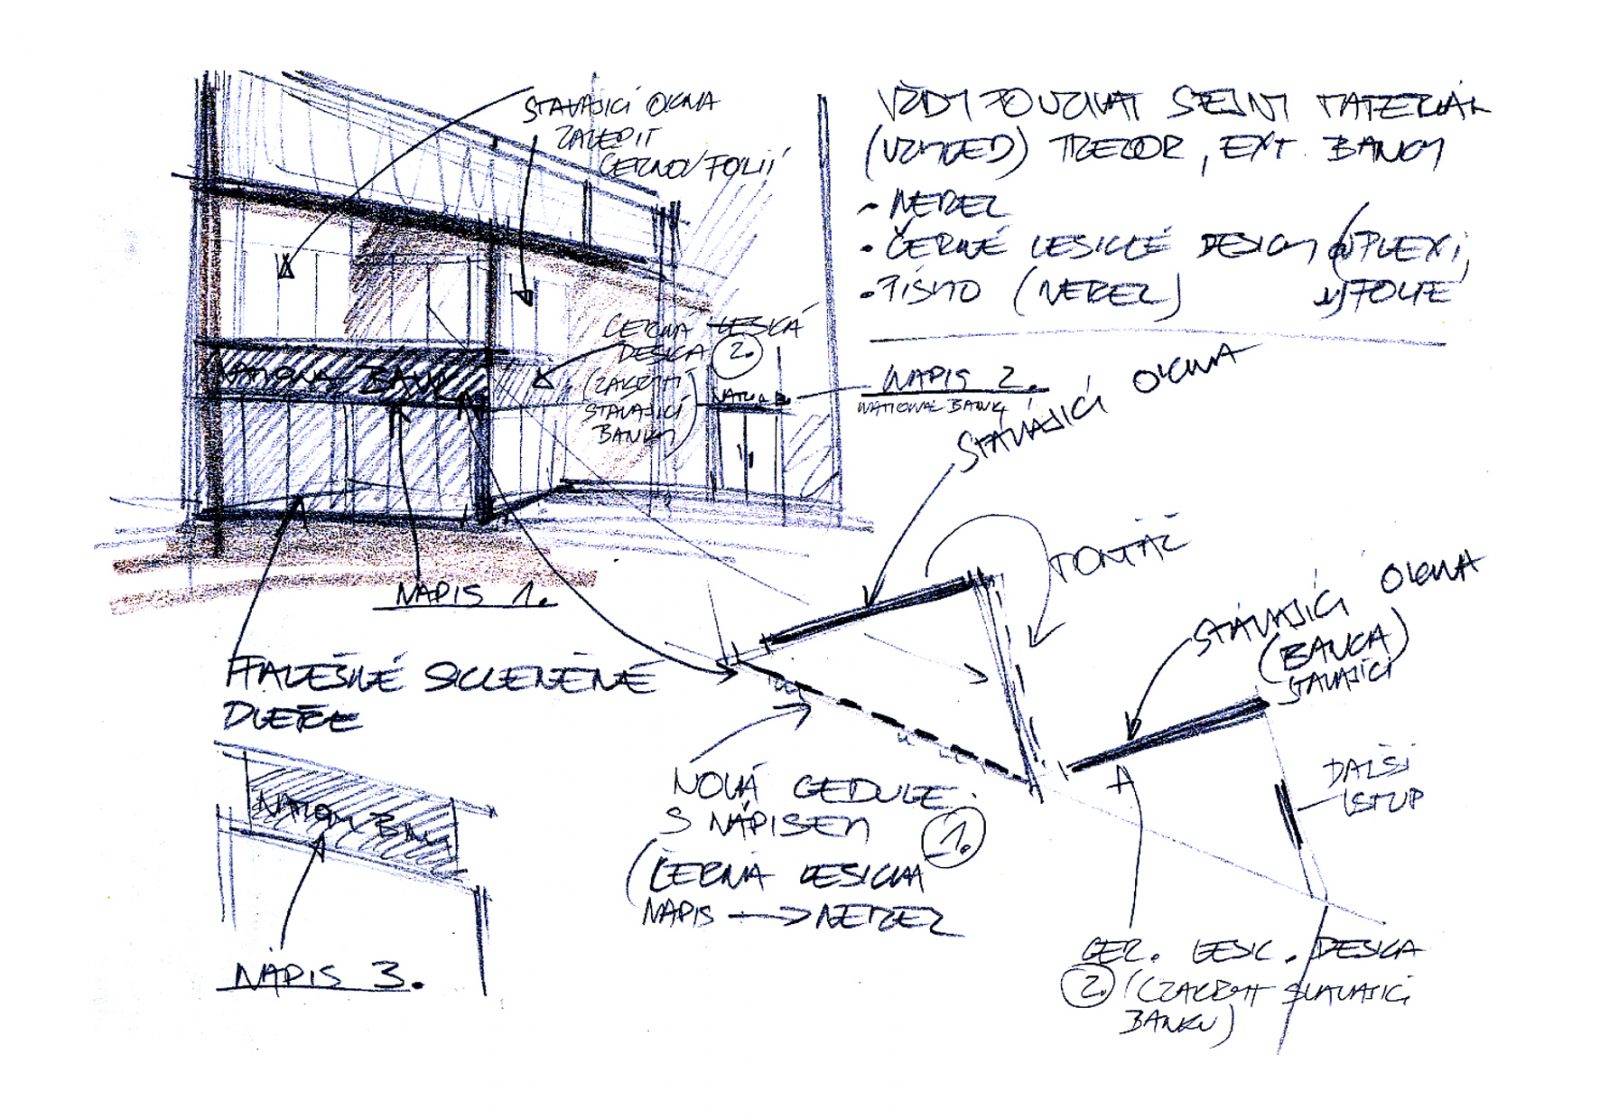 STÁVAJÍCÍ OKNA
ZALEPIT
ČERNOU FOLIÍ
VŽDY POUŽÍVAT STEJNÝ MATERIÁL
(VZHLED) TREZOR, EXT. BANKY
- NEREZ
• ČERNÉ LESKLÉ DESKY PLEXI,
FOLIE
• PÍSMO (NEREZ)
ČERNÁ LESKLÁ
DESKA 2.
(ZAKRYTÍ
STÁVAJÍCÍ
BANKY)
NATIONAL BANK
NÁPIS 2.
NATIONAL BANK
STÁVAJÍCÍ OKNA
NÁPIS 1.
MONTÁŽ
STÁVAJÍCÍ OKNA
(BANKA)
STÁVAJÍCÍ
FALEŠNÉ SKLENĚNÉ
DVEŘE
NOVÁ CEDULE
S NÁPISEM 1.
(ČERNÁ LESKLÁ
NÁPIS → NEREZ
DALŠÍ
VSTUP
NATION BAN
NÁPIS 3.
ČER. LESK. DESKA
2. (ZAKRÝT STÁVAJÍCÍ
BANKU)